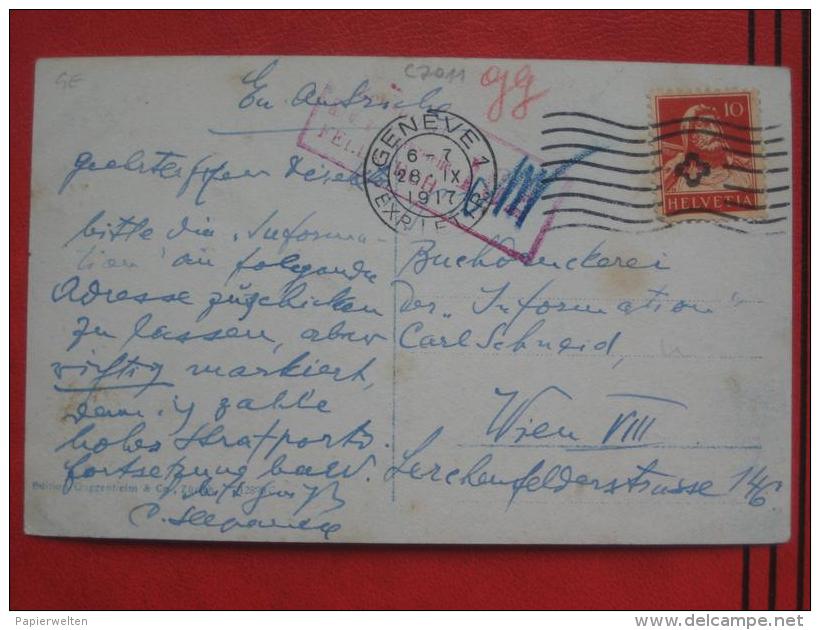 GE
C7011
gg
En Autriche
GENÈVE 1
6 - 7
28 IX
1917
EXP. LET.
10
HELVETIA
bitte die "Informa-
tion" an folgende
Adresse zuschicken
zu lassen, aber
richtig markiert,
denn ich zahle
hohes Strafporto.
Fortsetzung bald.
Buchdruckerei
der "Information"
Carl Schneid,
Wien VIII
Lerchenfelderstrasse 146
Edition Guggenheim & Co.,
Papierwelten
delcampe.net